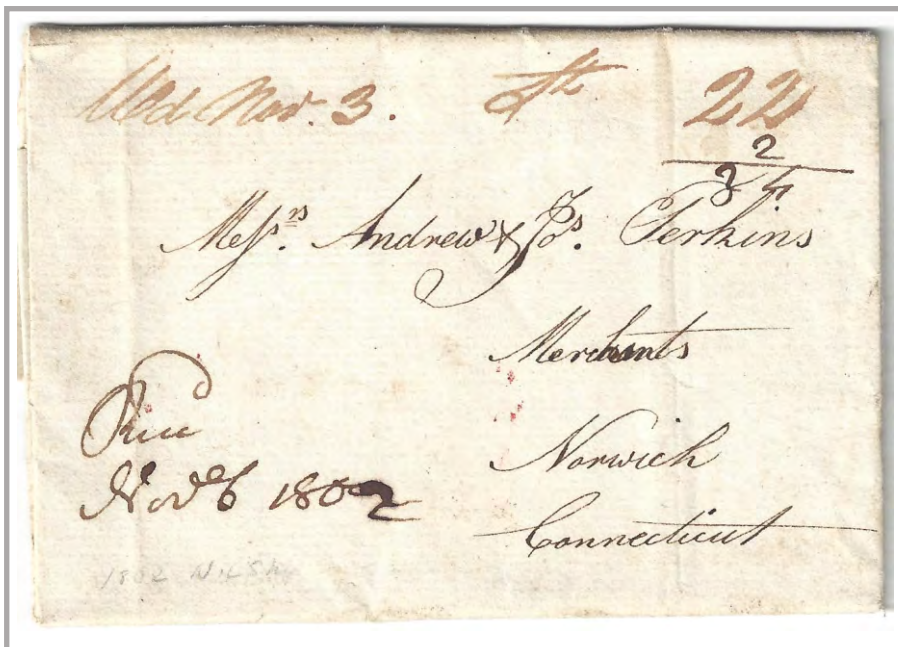 Nov. 3. 22
2
24
Messrs. Andrew & Jos. Perkins
Merchants
Norwich
Connecticut
Nov 6 1802
1802